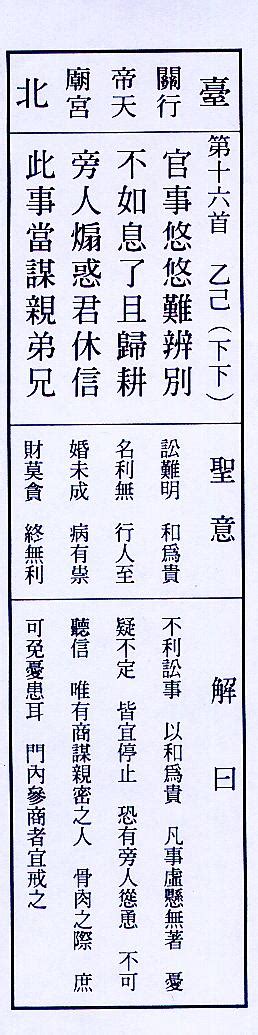 臺北
行天宮
關帝廟
第十六首 乙己（下下）
官事悠悠難辨別
不如息了且歸耕
旁人煽惑君休信
此事當謀親弟兄
聖意
訟難明 和為貴
名利無 行人至
婚未成 病有祟
財莫貪 終無利
解曰
不利訟事 以和為貴 凡事虛懸無著 憂
疑不定 皆宜停止 恐有旁人慫恿 不可
聽信 唯有商謀親密之人 骨肉之際 庶
可免憂患耳 門內參商者宜戒之